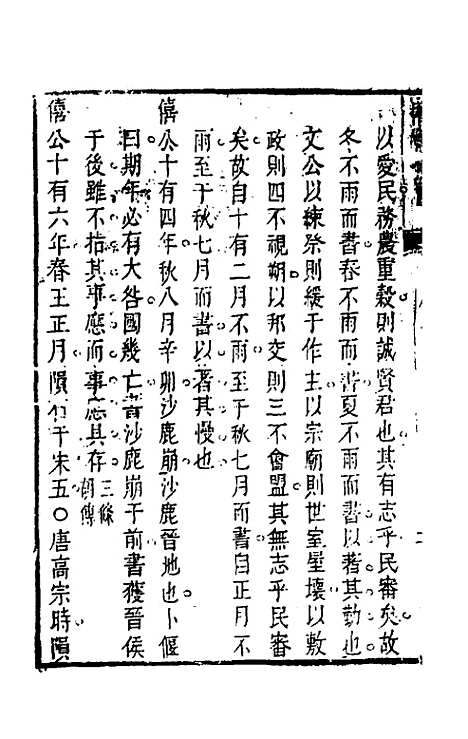 以愛民務農重穀則誠賢君也其有志乎民審矣故
冬不雨而書春不雨而書夏不雨而書以著其勤也
文公以練祭則緩于作主以宗廟則世室屋壞以敷
政則四不視朔以邦交則三不會盟其無志乎民審
矣故自十有二月不雨至于秋七月而書自正月不
雨至于秋七月而書以著其慢也
僖公十有四年秋八月辛卯沙鹿崩沙鹿晉地也卜偃
曰期年必有大咎國幾亡書沙鹿崩于前書獲晉侯
于後雖不指其事應而事應其存三條胡傳
僖公十有六年春王正月隕石于宋五○唐高宗時隕